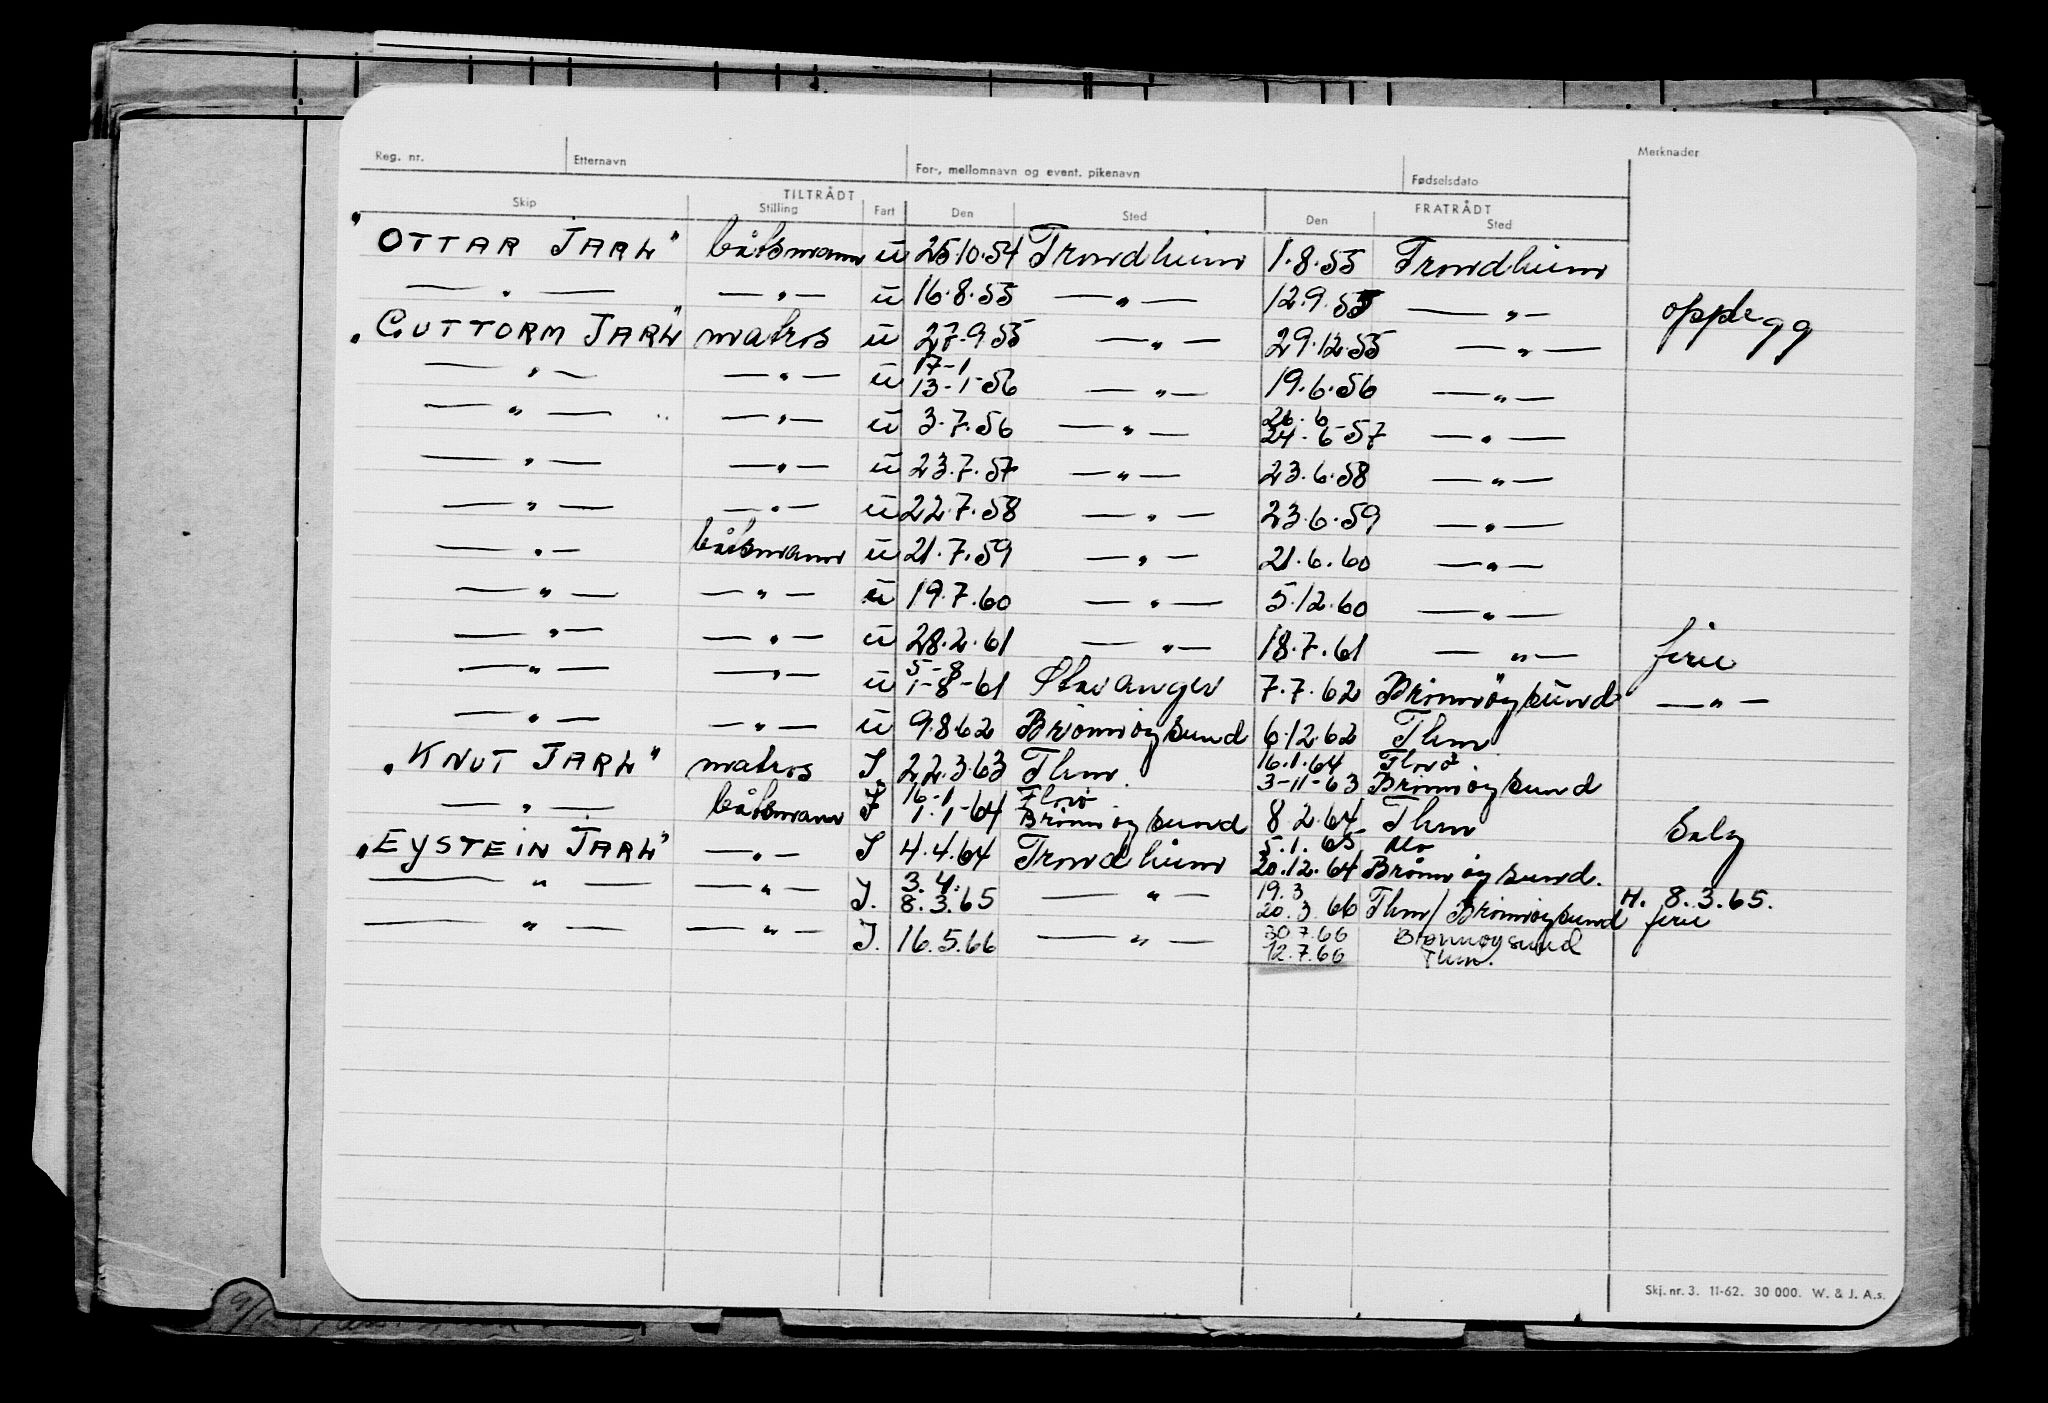 Reg. nr. Etternavn For-, mellomnavn og event. pikenavn Fødselsdato Merknader
TILTRÅDT FRATRÅDT
Skip Stilling Fart Den Sted Den Sted
"OTTAR JARL" båtsmann u 25.10.54 Trondheim 1.8.55 Trondheim
—"— —"— u 16.8.55 —"— 12.9.55 —"— opplegg
"GUTTORM JARL" matros u 27.9.55 —"— 29.12.55 —"—
17-1
—"— —"— u 13-1-56 —"— 19.6.56 —"—
26.6
—"— —"— u 3.7.56 —"— 24-6-57 —"—
—"— —"— u 23.7.57 —"— 23.6.58 —"—
—"— —"— u 22.7.58 —"— 23.6.59 —"—
—"— båtsmann u 21.7.59 —"— 21.6.60 —"—
—"— —"— u 19.7.60 —"— 5.12.60 —"—
—"— —"— u 28.2.61 —"— 18.7.61 —"— ferie
5-8
—"— —"— u 1-8-61 Stavanger 7.7.62 Brønnøysund —"—
—"— —"— u 9.8.62 Brønnøysund 6.12.62 Thm
16.1.64 Florø
"KNUT JARL" matros I. 22.3.63 Thm. 3-11-63 Brønnøysund
16-1 Florø
—"— båtsmann I 1.1-64 Brønnøysund 8.2.64 Thm Salg
5.1.65
"EYSTEIN JARL" —"— I 4.4.64 Trondheim 20.12.64 Brønnøysund.
3.4. 19.3 H. 8.3.65.
—"— —"— I. 8.3.65 —"— 20.3.66 Thm/Brønnøysund ferie
30.7.66 Brønnøysund
—"— —"— I. 16.5.66 —"— 12.7.66 Thm.
Skj. nr. 3. 11-62. 30 000. W. & J. A.s.